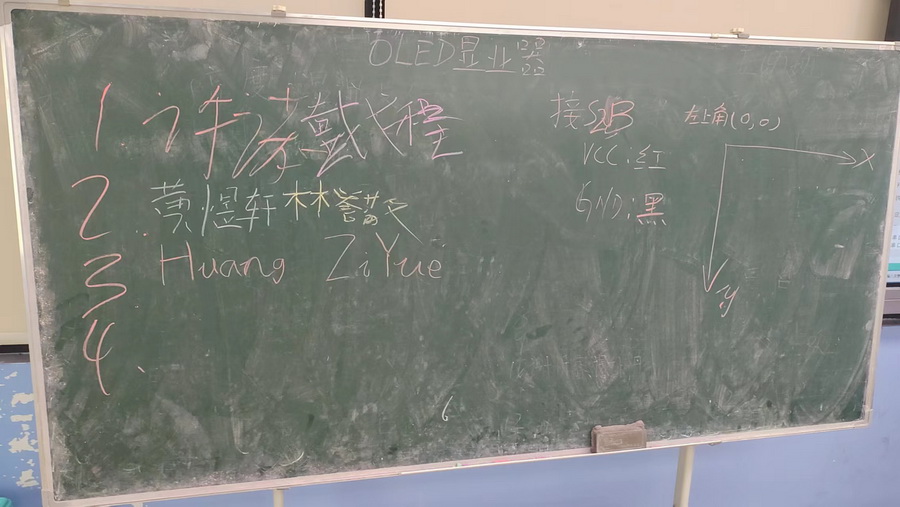 OLED显示器
1 许涛戴文程
2. 黄煜轩林
3 Huang ZiYue
4.
接S2B
VCC:红
GND:黑
左上角(0,0)
X
y
6